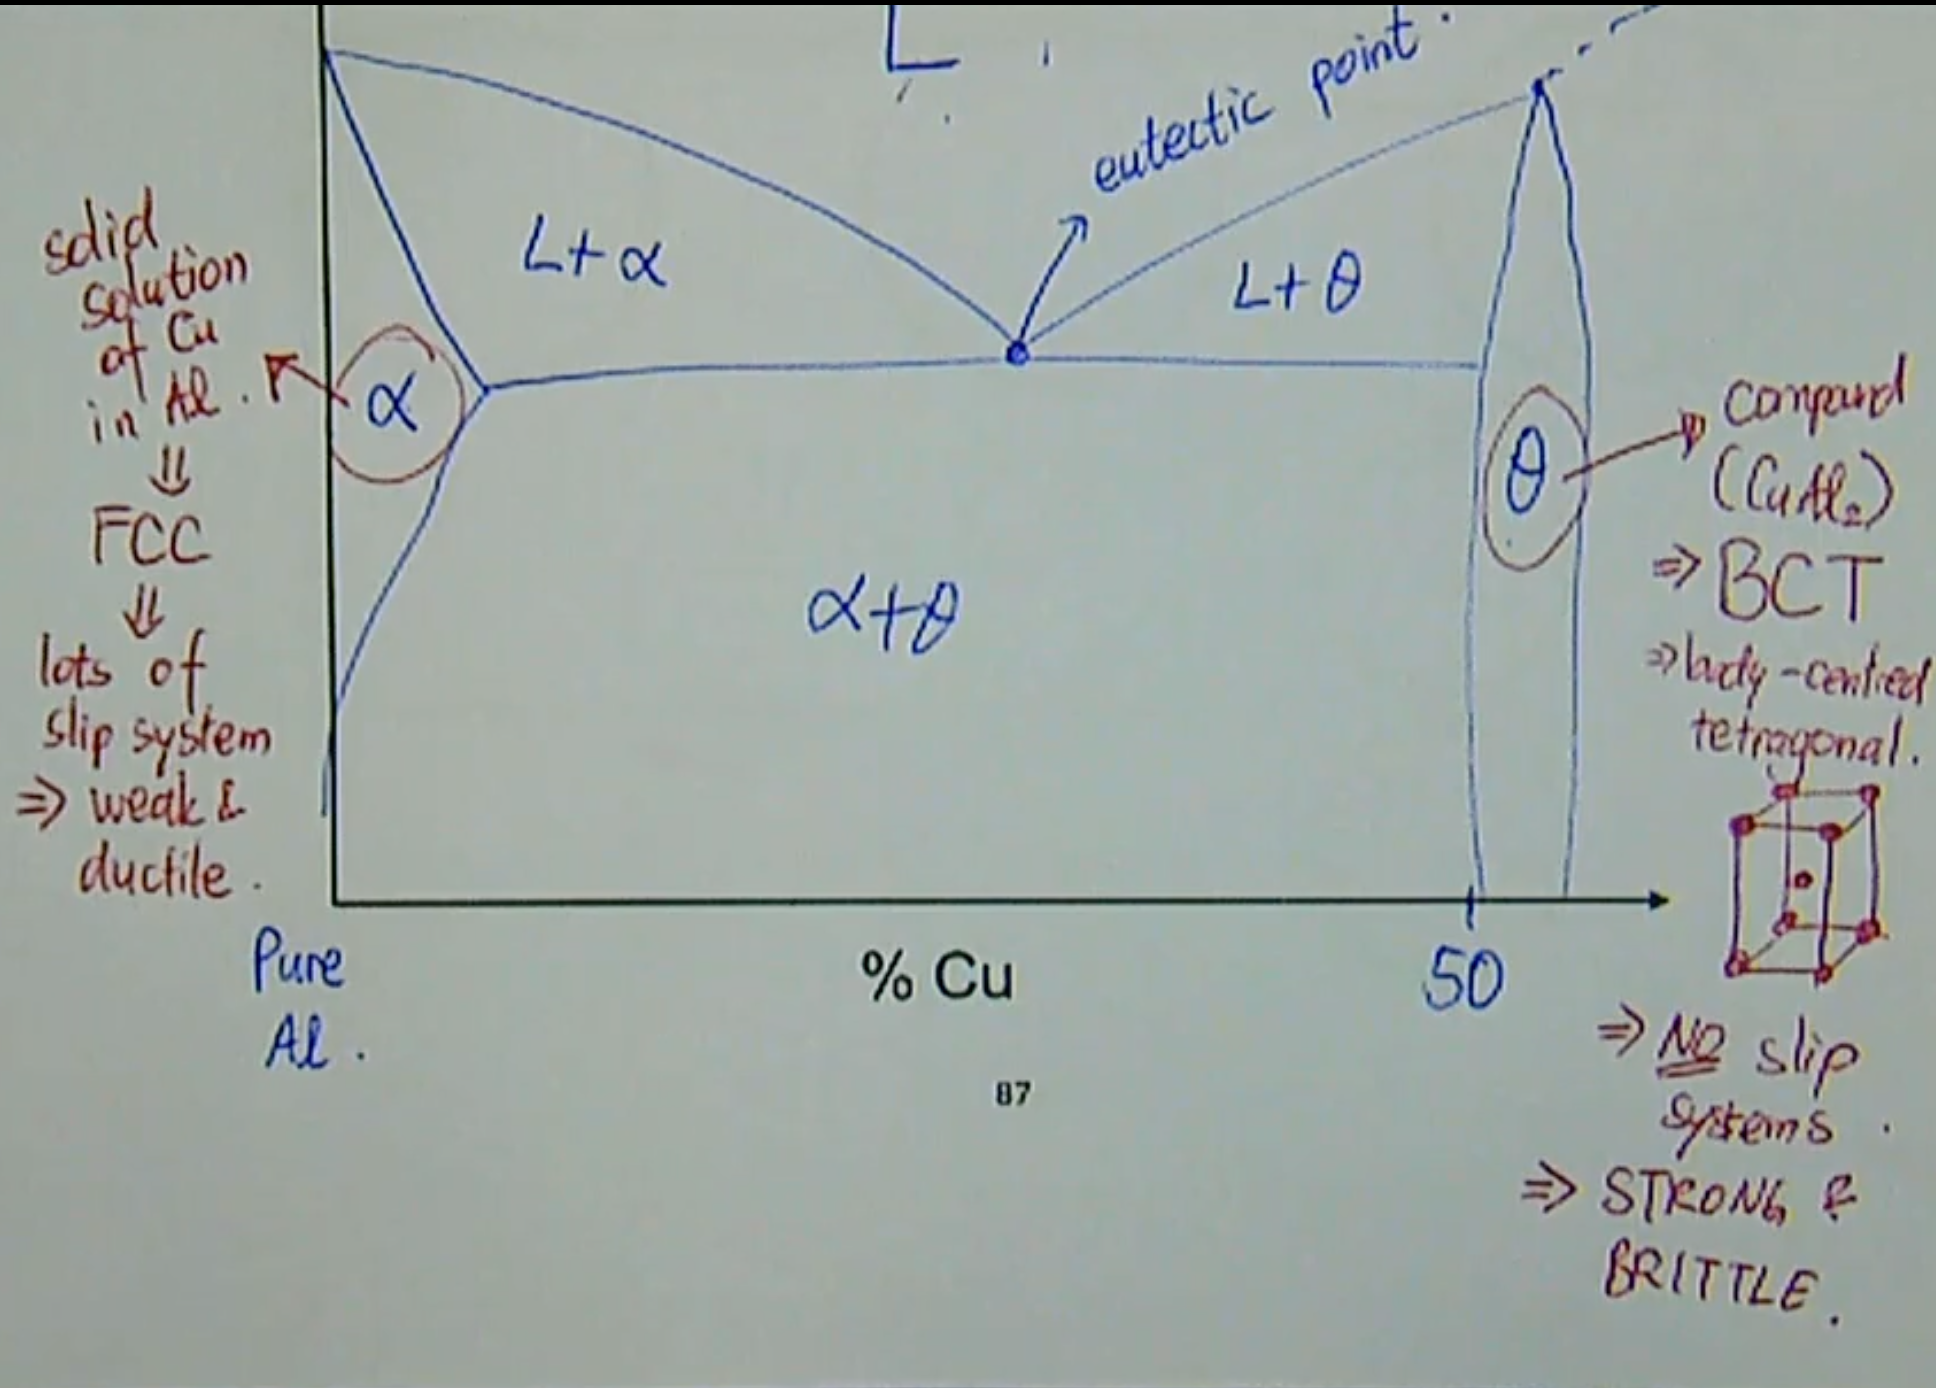 L
eutectic point.
L+α
L+θ
solid
solution
of Cu
in Al.
⇓
FCC
⇓
lots of
slip system
⇒ weak &
ductile.
α
θ
α+θ
compound
(CuAl₂)
⇒ BCT
⇒ body-centred
tetragonal.
⇒ NO slip
systems.
⇒ STRONG &
BRITTLE.
Pure
Al.
% Cu
50
87